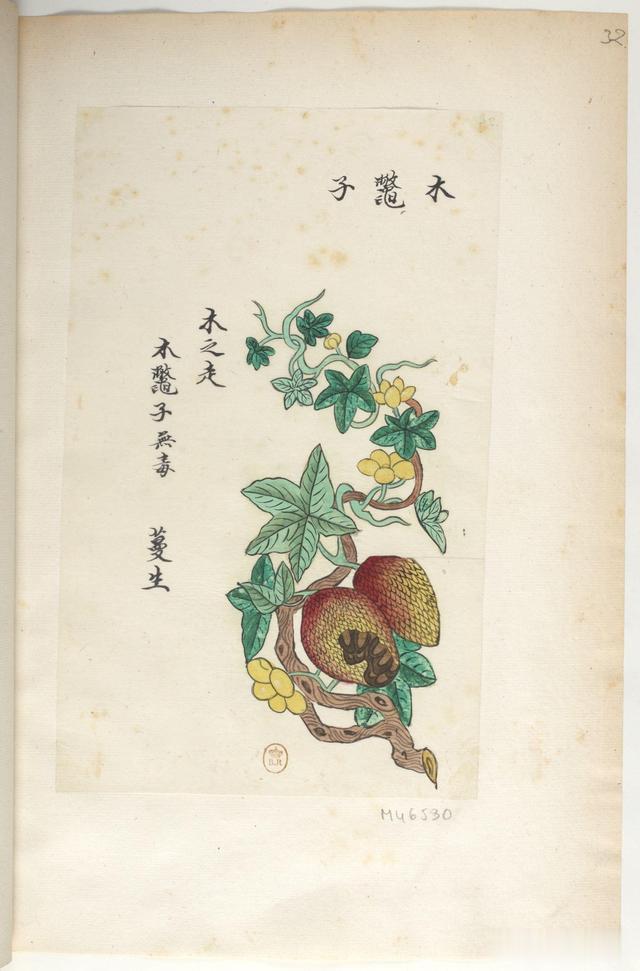 32
木鼈子
木之走
木鼈子無毒 蔓生
B.R
M46530